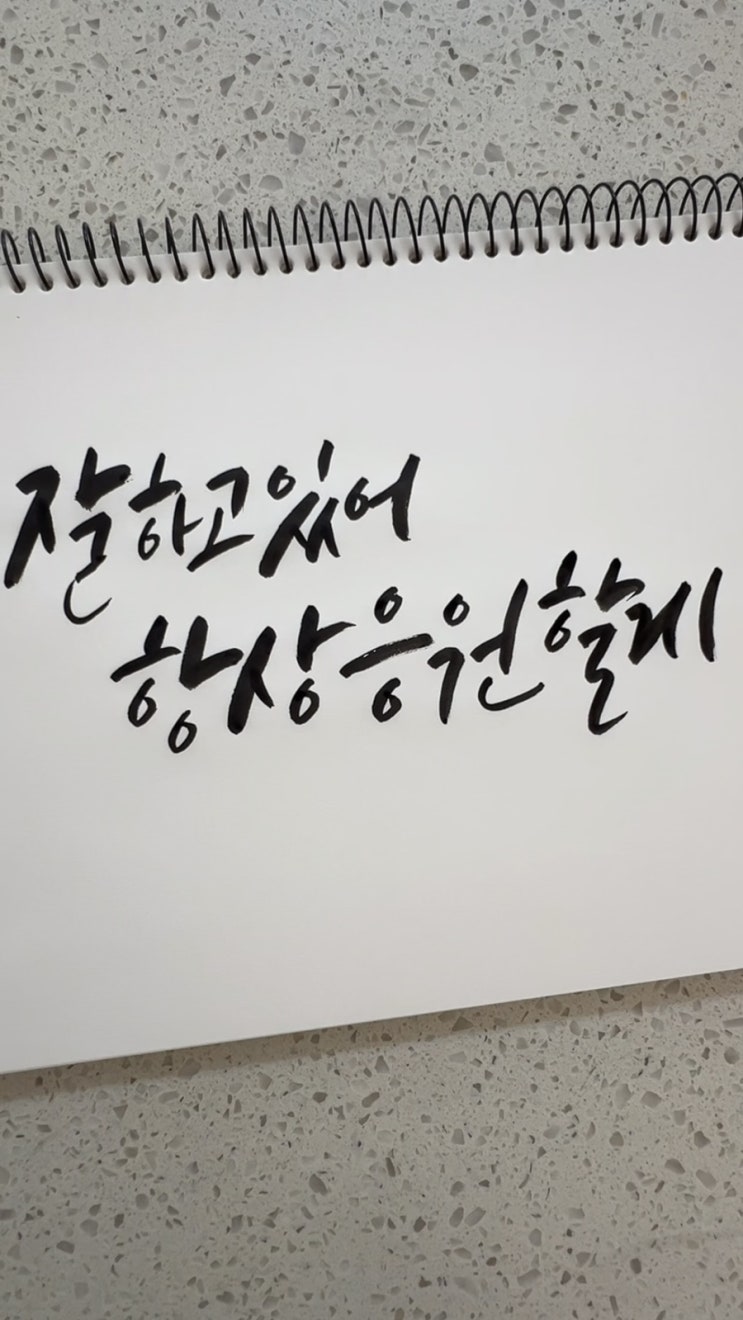 잘하고있어
항상응원할게